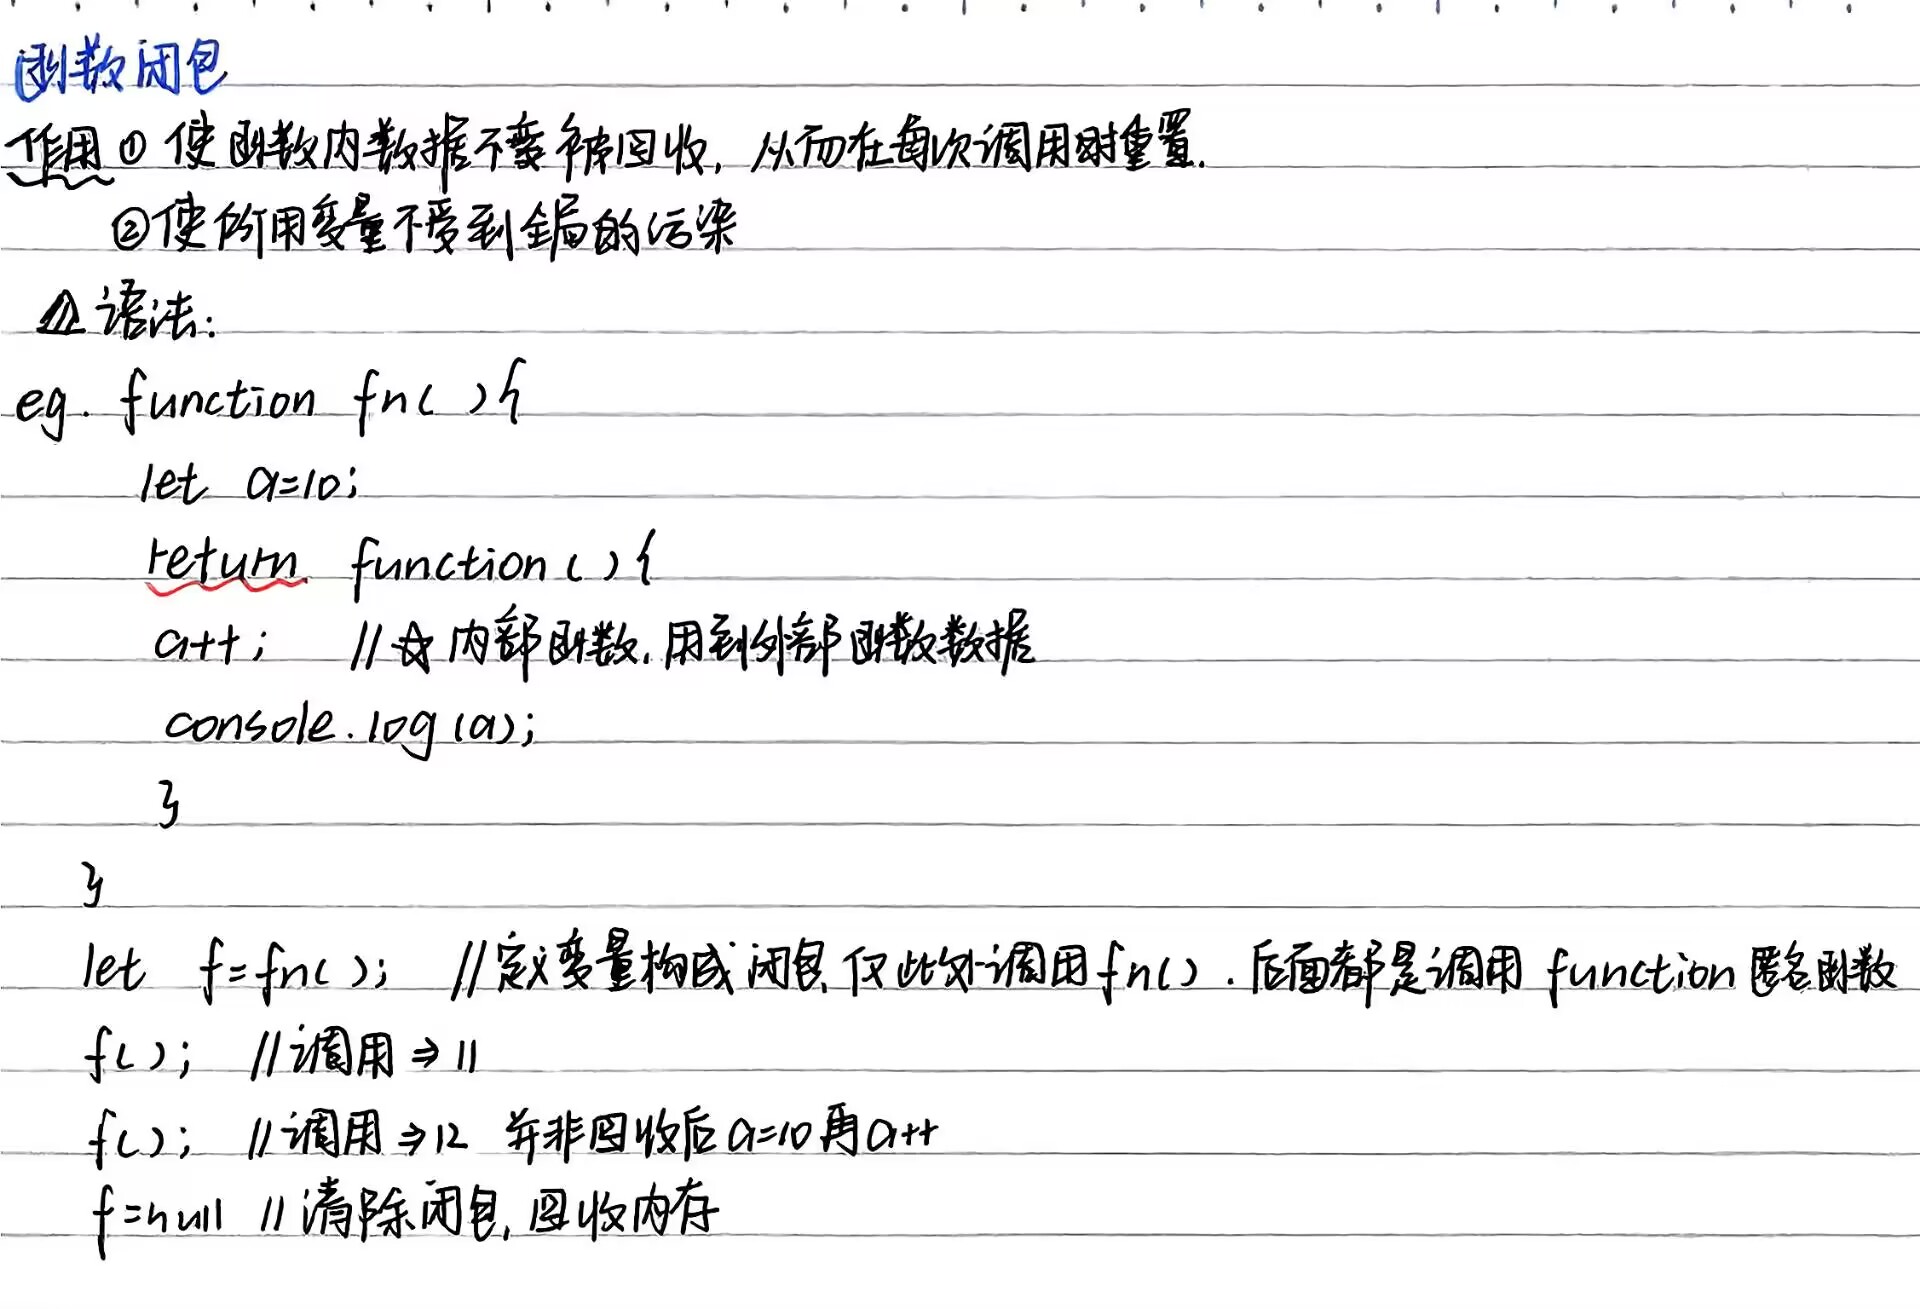 函数闭包
作用① 使函数内数据不要被回收, 从而在每次调用时重置.
②使所用变量不受到全局的污染
语法:
eg. function fn( ){
let a=10;
return function( ){
a++; //☆内部函数, 用到外部函数数据
console.log(a);
}
}
let f=fn( ); //定义变量构成闭包, 仅此处调用fn( ). 后面都是调用 function 匿名函数
f( ); //调用⇒11
f( ); //调用⇒12 并非回收后a=10再a++
f=null //清除闭包, 回收内存